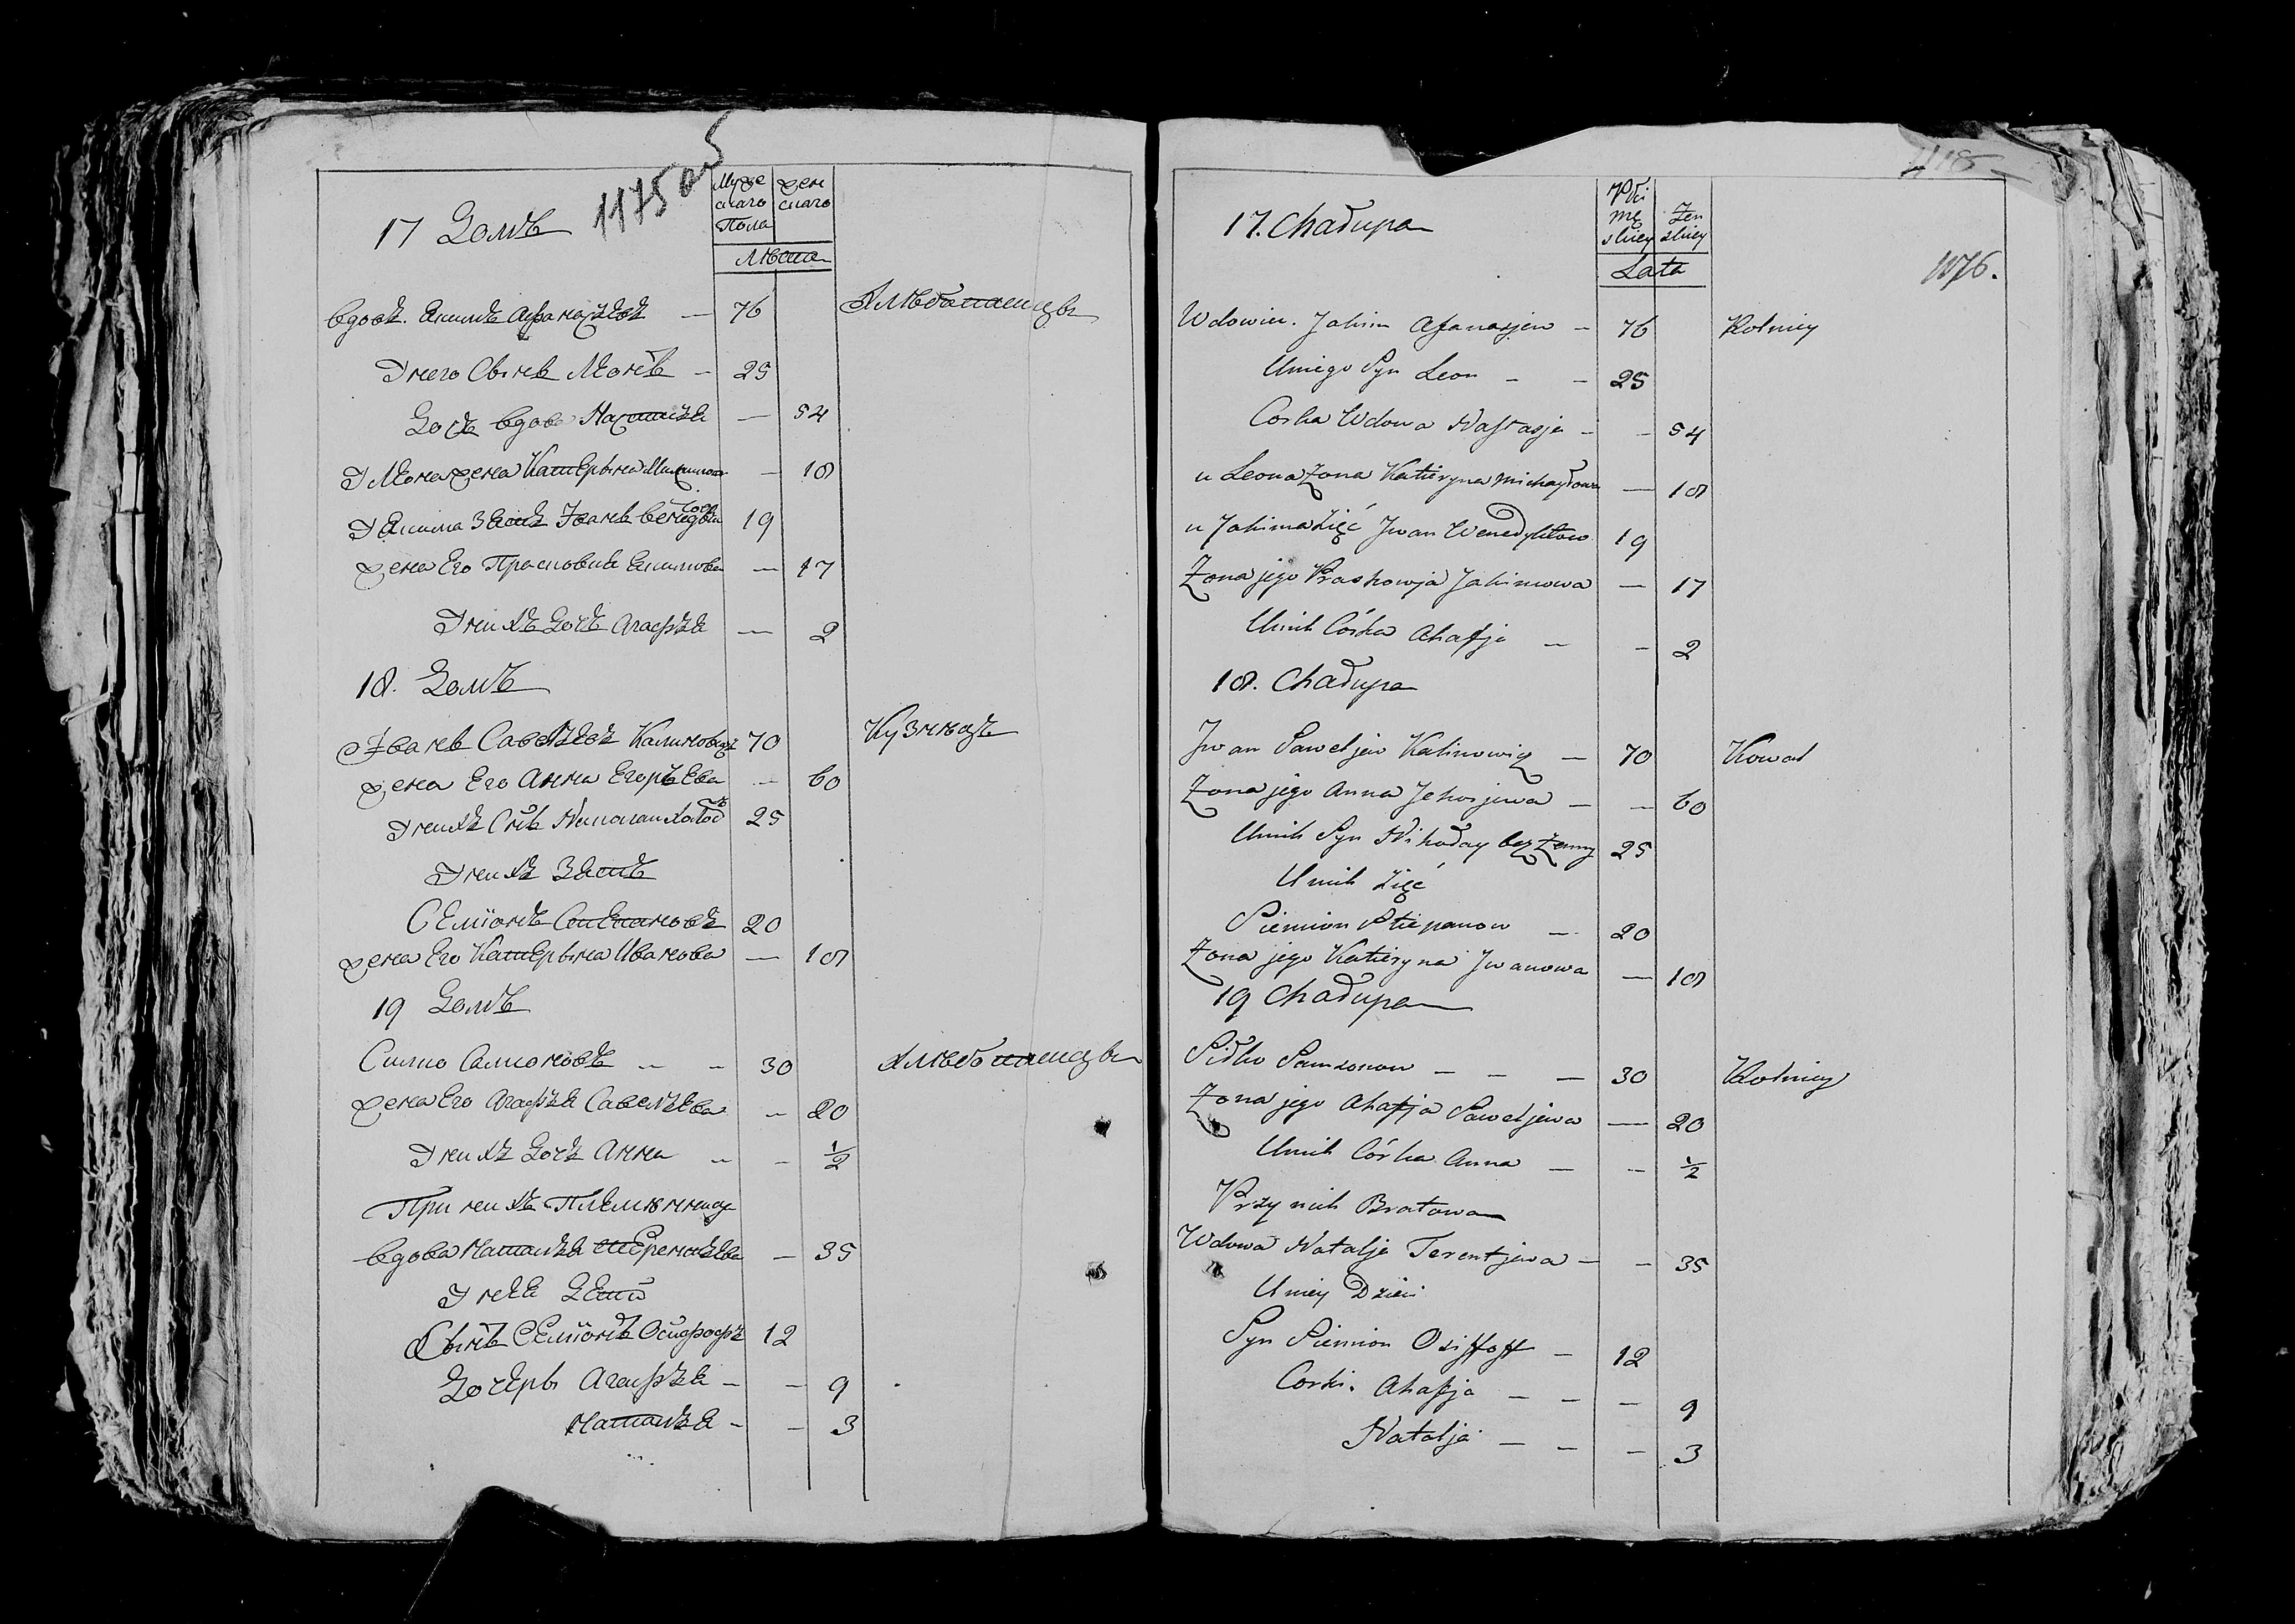 1175 об
Муже
скаго
Пола
жен
скаго
17 Домъ
Лѣта
вдовъ. Акимъ Афанасьевъ — 76 Хлѣбопашецъ
У него Сынъ Леонъ — 25
Дочь вдова Настасья — 54
У Леона жена Катерына Михайлова — 18
У Акима Зять Иванъ Бенедыктовъ 19
жена Его Прасковья Акимова — 17
У нихъ Дочь Агафья — 2
18. Домъ
Иванъ Савельевъ Калиновичъ 70 Кузнѣцъ
жена Его Анна Егорьева — 60
У нихъ Снъ Николай Холос 25
У нихъ Зять
Семіонъ Степановъ 20
жена Его Катерына Иванова — 18
19 Домъ
Самсоновъ — — 30 Хлѣбопашецъ
жена Его Агафья Савельева — 20
У нихъ Дочь Анна — — ½
При нихъ Племѣнница
вдова Наталья Терентьева — 35
У нея Дети
Сынъ Семіонъ Осифофъ 12
Дочеры Агафья — — 9
Наталья — — 3
1185
Płci
mę
skiey
Żeń
skiey
17. Chałupa
Lata
1176.
Wdowiec. Jakim Afanasjew — 76 Rolniey
U niego Syn Leon — — 25
Corka Wdowa Nastasja — — 54
u Leona Żona Katieryna Michayłowa — 18
u Jakima Zięć Jwan Wenedyktow 19
Żona jego Praskowja Jakimowa — 17
U nich Córka Ahafja — — 2
18. Chałupa
Jwan Saweljew Kalinowicz — 70 Kowal
Żona jego Anna Jehorjewa — — 60
U nich Syn Nikołay bez Żenny 25
U nich Zięć
Siemion Stiepanow — 20
Żona jego Katieryna Jwanowa — 18
19 Chałupa
Sidko Samsonow — — — 30 Rolniey
Żona jego Ahafja Saweljewa — 20
U nich Córka Anna — — ½
Przy nich Bratowa
Wdowa Natalja Terentjewa — — 35
U niey Dzieci
Syn Siemion Osiffoff — 12
Corki. Ahafja — — — 9
Natalja — — — 3